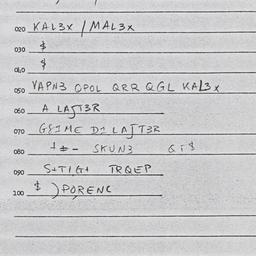 020 KAL3X / MAL3X
030 $
040 $
050 VAPN3 OPOL QRR QGL KAL3X
060 A LAJT3R
070 G8IME D1 LAJT3R
080 SKUN3 QT$
090 TRQEP
100 $ ) PORENC